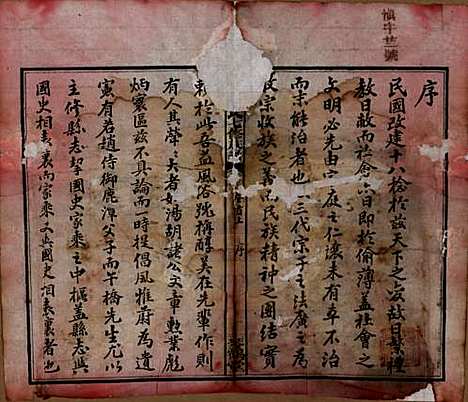 慎字號
序
民國改建十八稔於茲天下之政教日繁禮
教日敝而社會亦日即於偷薄蓋社會之
文明必先由家庭之仁讓未有身不治
而宗能治者也三代宗子之法廢之為
宗收族之善民族精神之團結實
序
賴於此吾益風俗號稱醇美在先輩作則
有人其聲大者如湯胡諸公文章勳業彪
炳寰區茲不具論而一時提倡風雅蔚為遺
憲有若趙侍御鹿潭父子而午橋先生尤以
主修縣志挈國史家乘之中樞蓋縣志與
國史相表裏而家乘又與國史相表裏者也